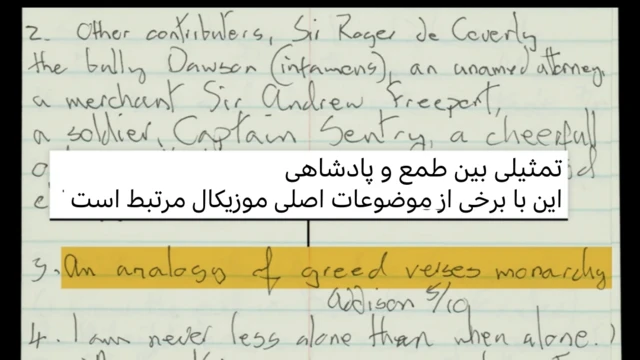 2. Other contributers, Sir Roger de Coverly
the bully Dawson (infamous), an unamed attorney,
a merchant Sir Andrew Freeport,
a soldier, Captain Sentry, a cheerfull
تمثیلی بین طمع و پادشاهی
این با برخی از موضوعات اصلی موزیکال مرتبط است
3. An analogy of greed verses monarchy
Addison 5/10
4. I am never less alone than when alone.)